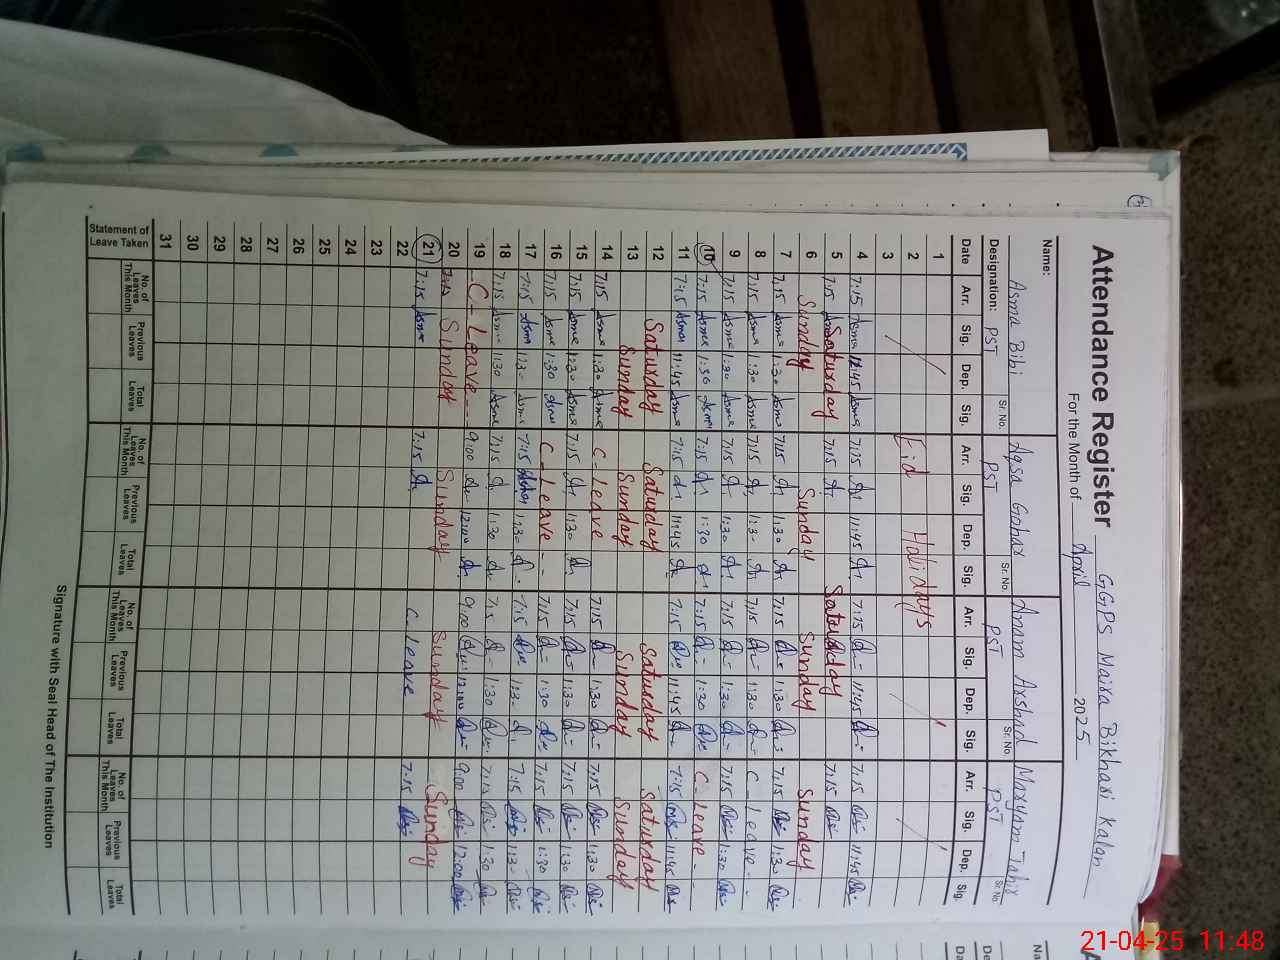 Attendance Register GGPS Maira Bikhari Kalan
For the Month of April 2025
Name: Asma Bibi Aqsa Gohar Anam Arshad Maryam Tahir
Designation: PST Sr. No. PST Sr. No. PST Sr. No. PST Sr. No.
Date Arr. Sig. Dep. Sig. Arr. Sig. Dep. Sig. Arr. Sig. Dep. Sig. Arr. Sig. Dep. Sig.
1
2 Eid Holidays
3
4 7:15 Asma 11:45 Asma 7:15 11:45 7:15 11:45 7:15 11:45
5 7:15 Saturday 7:15 Saturday 7:15
6 Sunday Sunday Sunday Sunday
7 7:15 Asma 1:30 Asma 7:15 1:30 7:15 1:30 7:15 1:30
8 7:15 Asma 1:30 Asma 7:15 1:30 7:15 1:30 C Leave - -
9 7:15 Asma 1:30 Asma 7:15 1:30 7:15 1:30 7:15 1:30
10 7:15 Asma 1:30 Asma 7:15 1:30 7:15 1:30 C - Leave - -
11 7:15 Asma 11:45 Asma 7:15 11:45 7:15 11:45 7:15 11:45
12 Saturday Saturday Saturday Saturday
13 Sunday Sunday Sunday Sunday
14 7:15 Asma 1:30 Asma C - Leave 7:15 1:30 7:15 1:30
15 7:15 Asma 1:30 Asma 7:15 1:30 7:15 1:30 7:15 1:30
16 7:15 Asma 1:30 Asma C - Leave - - 7:15 1:30 7:15 1:30
17 7:15 Asma 1:30 Asma 7:15 1:30 7:15 1:30 7:15 1:30
18 7:15 Asma 1:30 Asma 7:15 1:30 7:15 1:30 7:15 1:30
19 - C - Leave - - - 9:00 12:00 9:00 12:00 9:00 12:00
20 Sunday Sunday Sunday Sunday
21 7:15 Asma 7:15 C - Leave 7:15
22
23
24
25
26
27
28
29
30
31
Statement of Leave Taken No. of Leaves This Month Previous Leaves Total Leaves No. of Leaves This Month Previous Leaves Total Leaves No. of Leaves This Month Previous Leaves Total Leaves No. of Leaves This Month Previous Leaves Total Leaves
Signature with Seal Head of The Institution
21-04-25 11:48